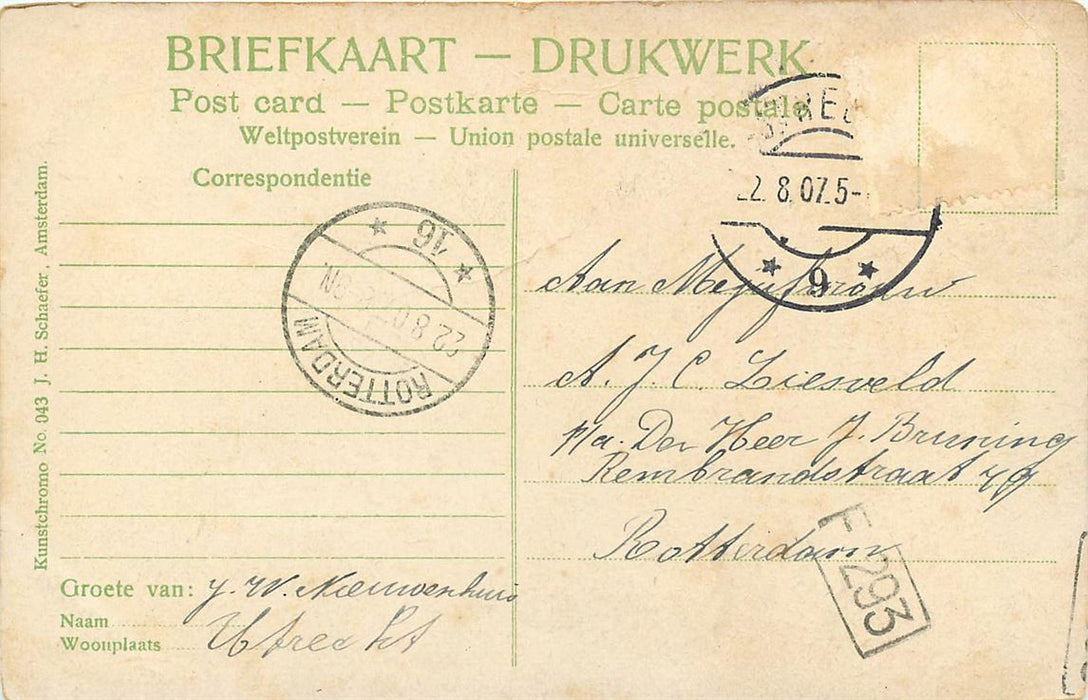 BRIEFKAART — DRUKWERK
Post card — Postkarte — Carte postale
Weltpostverein — Union postale universelle.
Correspondentie
Kunstchromo No. 043 J. H. Schaefer, Amsterdam.
22.8.07.5-
9
16
22.8.0
ROTTERDAM
Aan Mejufvrouw
A. J. C. Liesveld
p/a. Den Heer J. Bruning
Rembrandstraat 49
Rotterdam
F 293
Groete van: J. W. Nieuwenhuis
Naam
Utrecht
Woonplaats